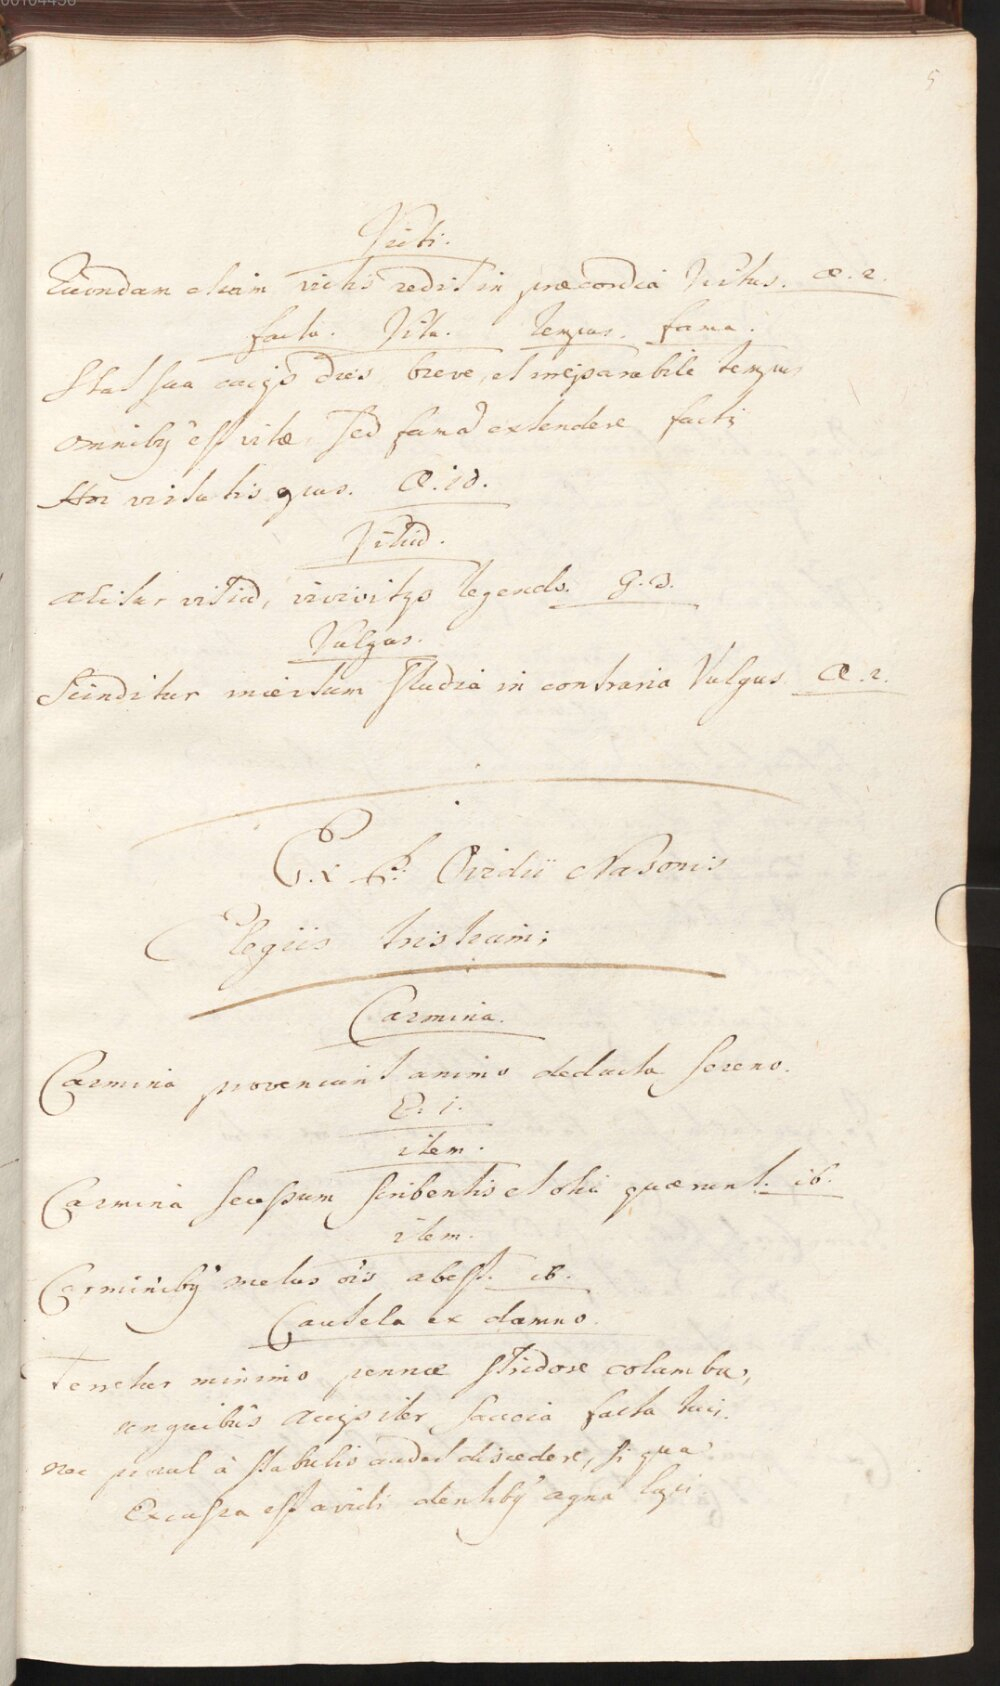 00104456
5
Victi.
Quondam etiam victis redit in præcordia Virtus. Æ. 2.
facta. Vita. tempus. fama.
Stat sua cuiq₃ dies, breve, et irreparabile tempus
omniby' est vitæ, Sed famā extendere factis
Hoc virtutis opus. Æ. 10.
Vitiū.
alitur vitiū, vivitq₃ tegendo. G. 3.
Vulgus.
Scinditur incertum studia in contraria Vulgus Æ. 2.
Ex P. Ovidii Nasonis
Elegiis tristium;
Carmina.
Carmina proveniunt animo deducta sereno.
E. 1.
item.
Carmina secessum scribentis et otia quærunt. ib.
item.
Carminiby' metus ōis abest. ib.
Cautela ex damno.
Terretur minimo pennæ stridore columba,
unguibus accipiter saucia facta tuis.
nec procul à stabulis audet discedere, si qua
Excussa est avidi dentiby' agna lupi.